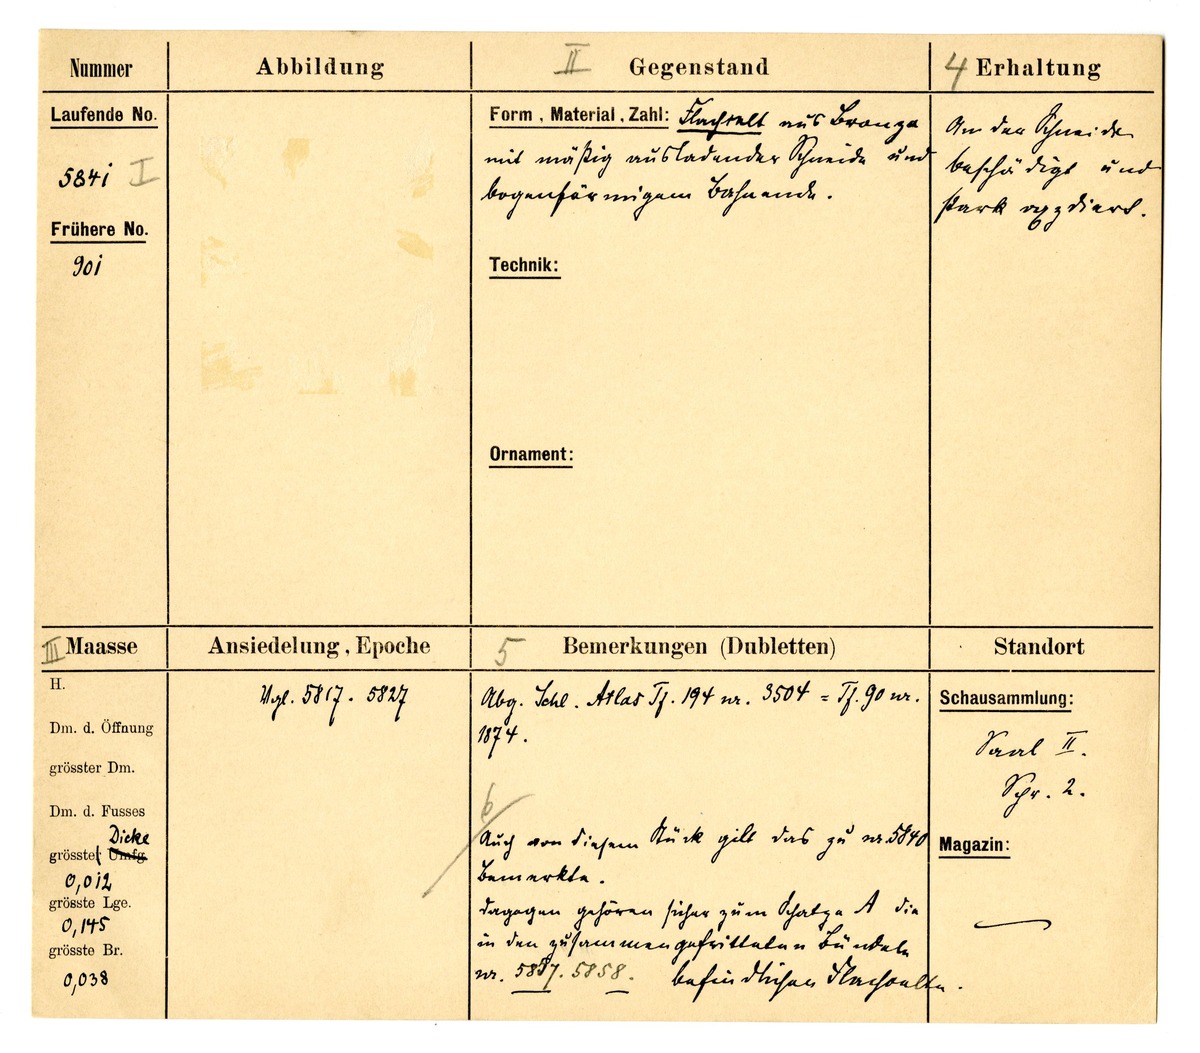 Nummer
Abbildung
II Gegenstand
4 Erhaltung
Laufende No.
5841 I
Frühere No.
901
Form, Material, Zahl: Flachcelt aus Bronze
mit mäßig ausladender Schneide und
bogenförmigem Bahnende.
Technik:
Ornament:
An der Schneide
beschädigt und
stark oxydiert.
III Maasse
Ansiedelung, Epoche
5 Bemerkungen (Dubletten)
Standort
H.
Dm. d. Öffnung
grösster Dm.
Dm. d. Fusses
Dicke
grösste Umfg.
0,012
grösste Lge.
0,145
grösste Br.
0,038
Vgl. 5817. 5827
Abg. Schl. Atlas Tf. 194 nr. 3504 = Tf. 90 nr.
1874.
6
Auch von diesem Stück gilt das zu nr. 5840
Bemerkte.
Dagegen gehören sicher zum Schatze A die
in den zusammengefritteten Bündeln
nr. 5857. 5858. befindlichen Flachcelte.
Schausammlung:
Saal II.
Schr. 2.
Magazin: